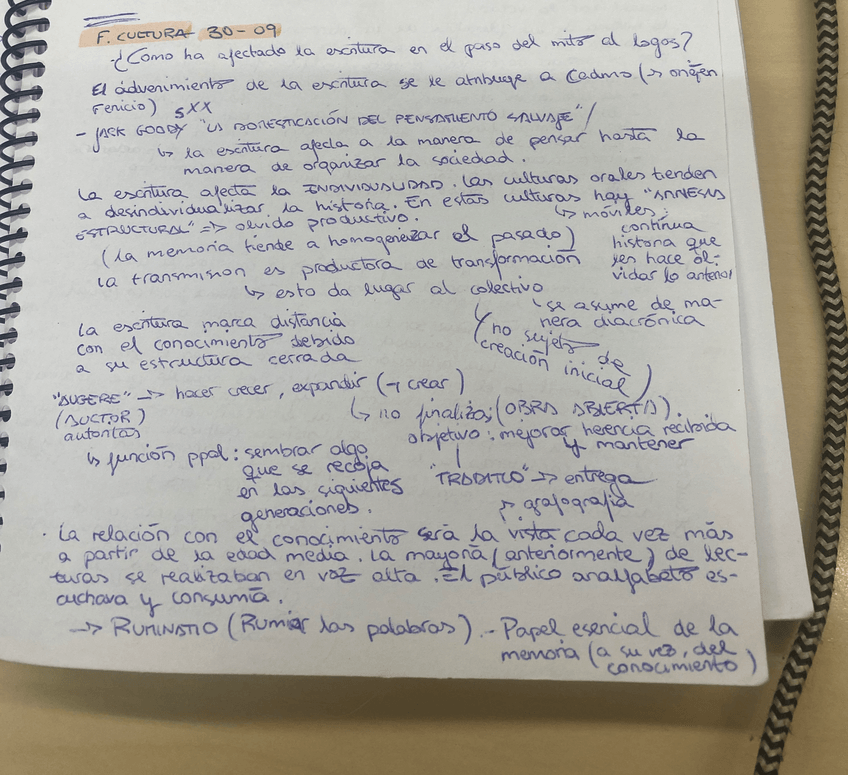 F. CULTURA - 30-09
¿Cómo ha afectado la escritura en el paso del mito al logos?
El advenimiento de la escritura se le atribuye a Cadmo (→ origen
Fenicio) SXX
- JACK GOODY "LA DOMESTICACIÓN DEL PENSAMIENTO SALVAJE" /
↳ la escritura afecta a la manera de pensar hasta la
manera de organizar la sociedad.
La escritura afecta la INDIVIDUALIDAD. Las culturas orales tienden
a desindividualizar la historia. En estas culturas hay "AMNESIA
ESTRUCTURAL" => olvido productivo.
↳ móviles:
continua
historia que
les hace ol-
vidar lo anterior
(la memoria tiende a homogeneizar el pasado)
La transmision es productora de transformación
↳ esto da lugar al colectivo
↳ se asume de ma-
nera diacrónica
(no sujeto de
creación inicial)
La escritura marca distancia
con el conocimiento debido
a su estructura cerrada
"AUGERE" → hacer crecer, expandir (→ crear)
(AUCTOR)
autoritas
↳ no finaliza; (OBRA ABIERTA).
objetivo: mejorar herencia recibida
y mantener
↳ función ppal: sembrar algo
que se recoja
en las siguientes
generaciones.
"TRADITIO" → entrega
↗ grafografia
· La relación con el conocimiento será la vista cada vez más
a partir de la edad media. La mayoría (anteriormente) de lec-
turas se realizaban en voz alta. El público analfabeto es-
cuchava y consumía.
→ RUMINATIO (Rumiar las palabras). - Papel esencial de la
memoria (a su vez, del
conocimiento)